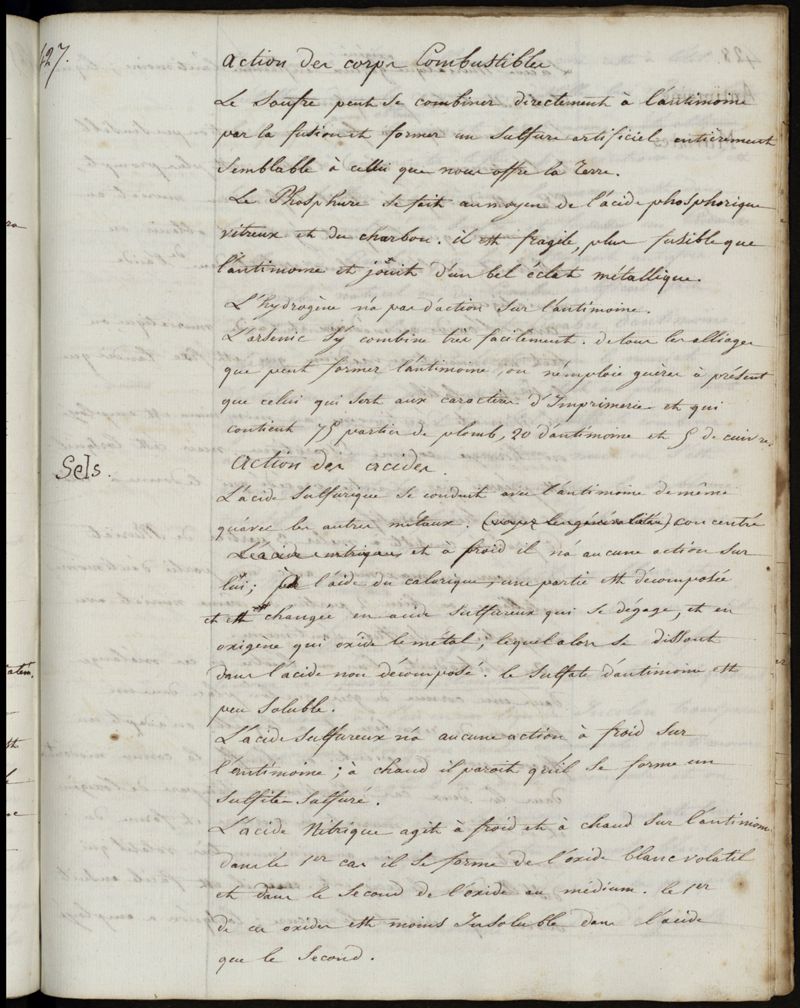 427.
Action des corps Combustibles
Le Soufre peut se combiner directement à l'antimoine
par la fusion et former un sulfure artificiel entièrement
semblable à cellui que nous offre la Terre.
Le Phosphure se fait au moyen de l'acide phosphorique
vitreux et du charbon. il est fragile, plus fusible que
l'antimoine et jouit d'un bel éclat métallique.
L'hydrogène n'a pas d'action sur l'antimoine.
L'arsenic s'y combine très facilement. de tous les alliages
que peut former l'antimoine, on n'emploie guères à présent
que celui qui sert aux caractères d'Imprimerie et qui
contient 75 parties de plomb, 20 d'antimoine et 5 de cuivre.
Sels.
Action des acides.
L'acide sulfurique se conduit avec l'antimoine de même
qu'avec les autres métaux. (voyez les généralités) concentré
L'acide nitrique et à froid il n'a aucune action sur
lui; à l'aide du calorique, une partie est décomposée
et est changée en acide sulfureux qui se dégage, et en
oxigène qui oxide le métal; lequel alors se dissout
dans l'acide non décomposé. le sulfate d'antimoine est
peu soluble.
L'acide sulfureux n'a aucune action à froid sur
l'antimoine; à chaud il paroit qu'il se forme un
sulfite sulfuré.
L'acide Nitrique agit à froid et à chaud sur l'antimoine
dans le 1er cas il se forme de l'oxide blanc volatil
et dans le second de l'oxide au médium. le 1er
de ces oxides est moins Insoluble dans l'acide
que le second.